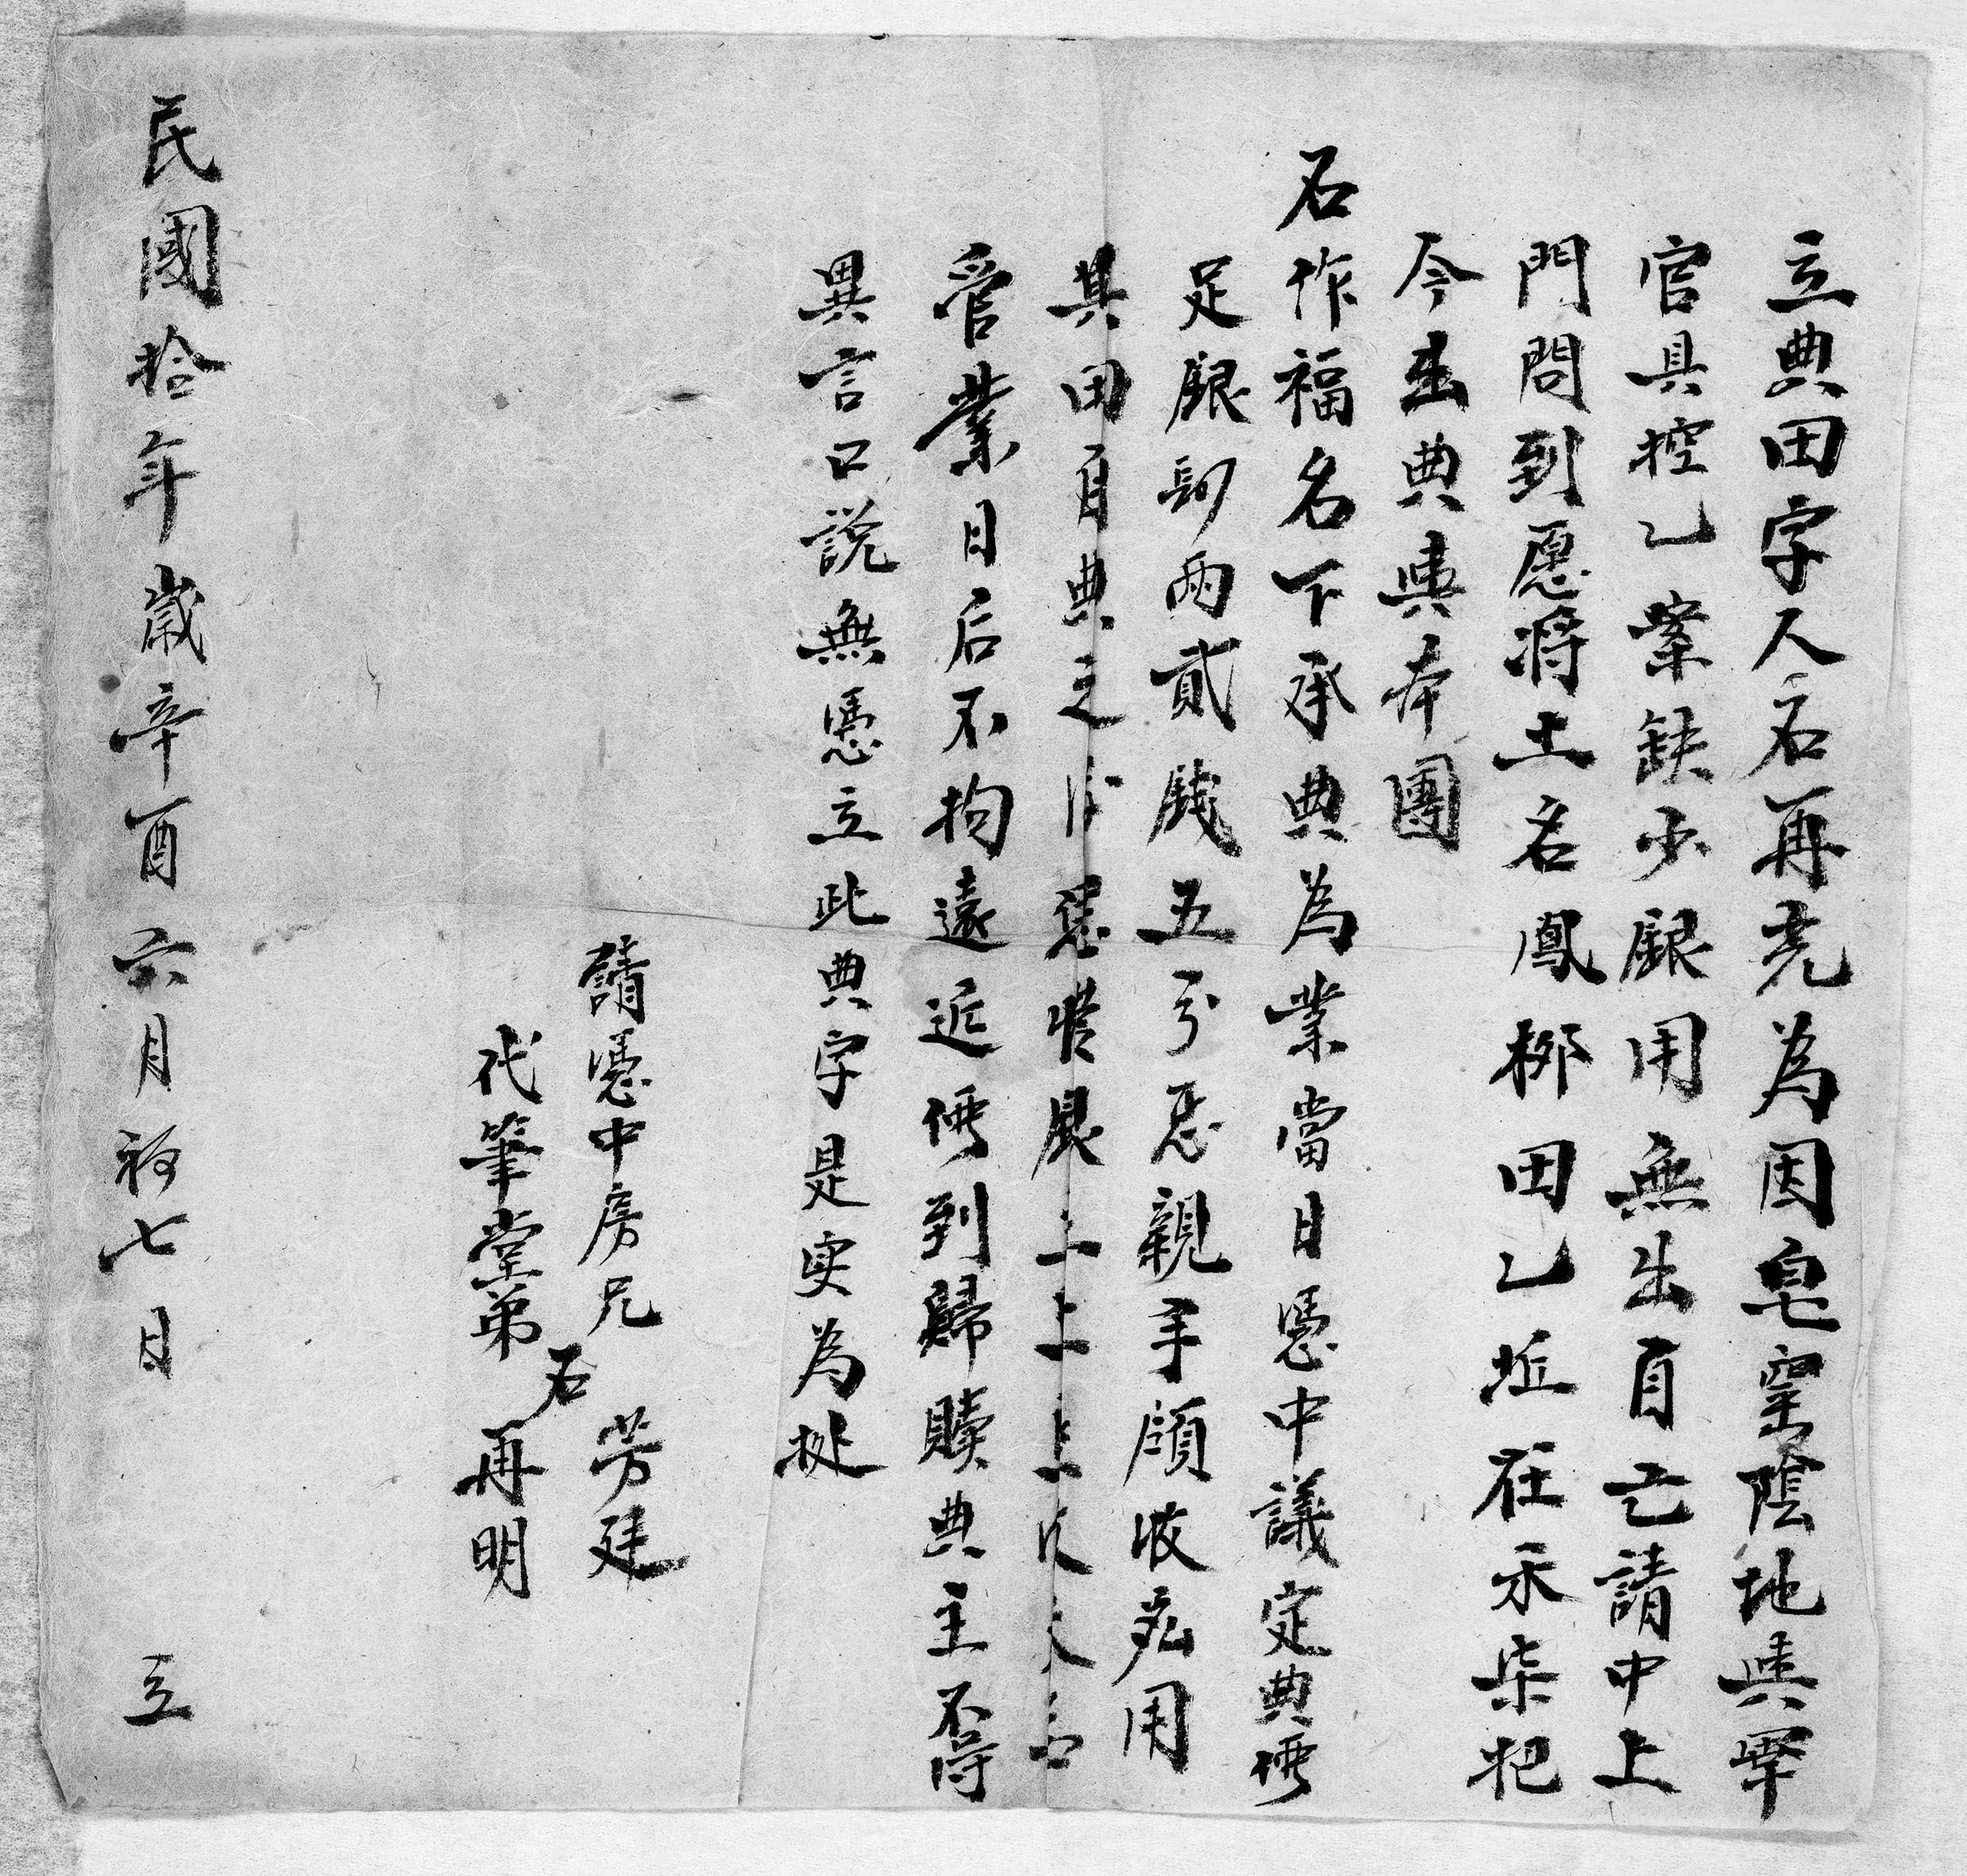 立典田字人石再堯為因皂室陰地與畢
官具控乙案缺少銀用無出自己請中上
門問到愿將土名鳳柳田乙坵在禾柒把
今出典與本團
石作福名下承典為業當日憑中議定典價
足銀 兩貳錢五分 親手領收 用
其田自典之 銀上
管業日后不拘遠近價到歸贖典主不得
異言口說無憑立此典字是实為挑
請憑中房兄石芳廷
代筆堂弟石再明
民國拾年歲辛酉六月初七日 立